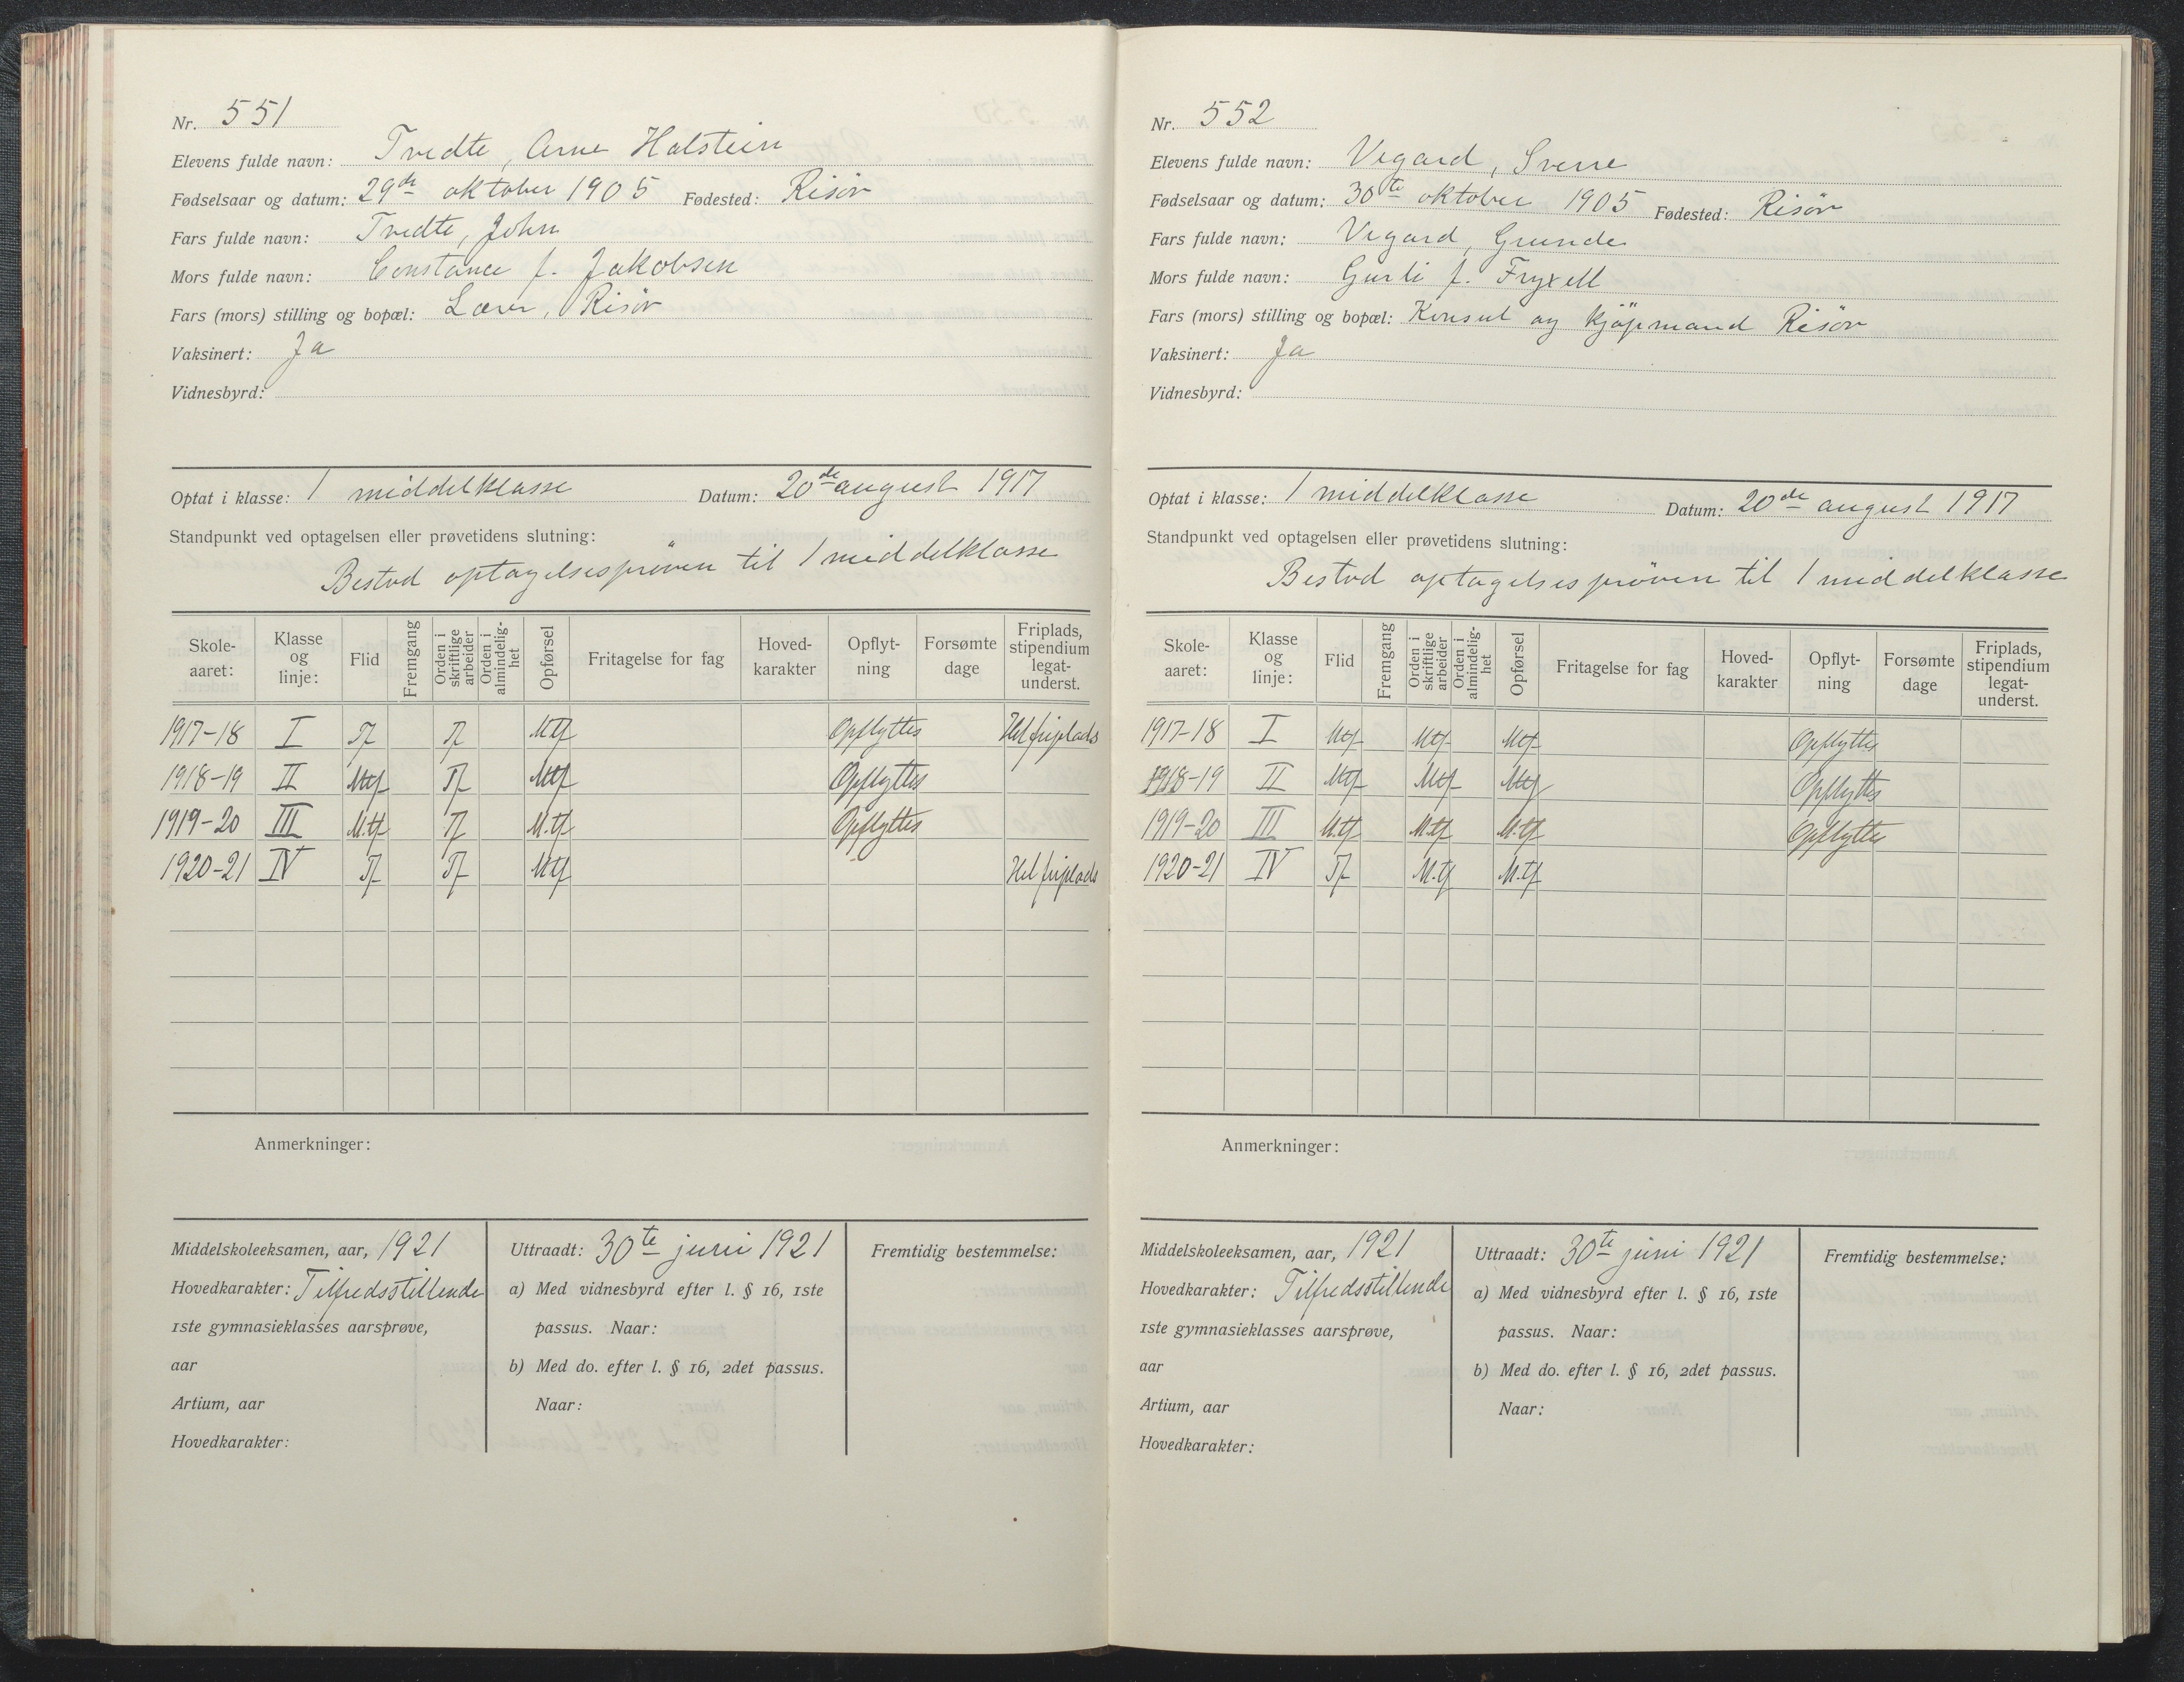 Nr. 551
Elevens fulde navn: Tvedte, Arne Halstein
Fødselsaar og datum: 29de oktober 1905 Fødested: Risör
Fars fulde navn: Tvedte, John
Mors fulde navn: Constance f. Jakobsen
Fars (mors) stilling og bopæl: Lærer, Risör
Vaksinert: Ja
Vidnesbyrd:
Optat i klasse: 1 middelklasse Datum: 20de august 1917
Standpunkt ved optagelsen eller prøvetidens slutning:
Bestod optagelsespröven til 1 middelklasse
Skole-aaret: Klasse og linje: Flid Fremgang Orden i skriftlige arbeider Orden i almindelig-het Opførsel Fritagelse for fag Hoved-karakter Opflyt-ning Forsømte dage Friplads, stipendium legat-underst.
1917-18 I Tf Tf Mtf Opflyttes Hel friplads
1918-19 II Mtf Tf Mtf Opflyttes
1919-20 III M.tf Tf M.tf Opflyttes
1920-21 IV Tf Tf Mtf Hel friplads
Anmerkninger:
Middelskoleeksamen, aar, 1921
Hovedkarakter: Tilfredsstillende
1ste gymnasieklasses aarsprøve,
aar
Artium, aar
Hovedkarakter:
Uttraadt: 30te juni 1921
a) Med vidnesbyrd efter l. § 16, 1ste
passus. Naar:
b) Med do. efter l. § 16, 2det passus.
Naar:
Fremtidig bestemmelse:
Nr. 552
Elevens fulde navn: Vegard, Sverre
Fødselsaar og datum: 30te oktober 1905 Fødested: Risör
Fars fulde navn: Vegard, Grunde
Mors fulde navn: Gurli f. Fryxell
Fars (mors) stilling og bopæl: Konsul og kjöpmand Risör
Vaksinert: Ja
Vidnesbyrd:
Optat i klasse: 1 middelklasse Datum: 20de august 1917
Standpunkt ved optagelsen eller prøvetidens slutning:
Bestod optagelsespröven til 1 middelklasse
Skole-aaret: Klasse og linje: Flid Fremgang Orden i skriftlige arbeider Orden i almindelig-het Opførsel Fritagelse for fag Hoved-karakter Opflyt-ning Forsømte dage Friplads, stipendium legat-underst.
1917-18 I Mtf Mtf Mtf Opflyttes
1918-19 II Mtf Mtf Mtf Opflyttes
1919-20 III M.tf M.tf M.tf Opflyttes
1920-21 IV Tf M.tf M.tf
Anmerkninger:
Middelskoleeksamen, aar, 1921
Hovedkarakter: Tilfredsstillende
1ste gymnasieklasses aarsprøve,
aar
Artium, aar
Hovedkarakter:
Uttraadt: 30te juni 1921
a) Med vidnesbyrd efter l. § 16, 1ste
passus. Naar:
b) Med do. efter l. § 16, 2det passus.
Naar:
Fremtidig bestemmelse: